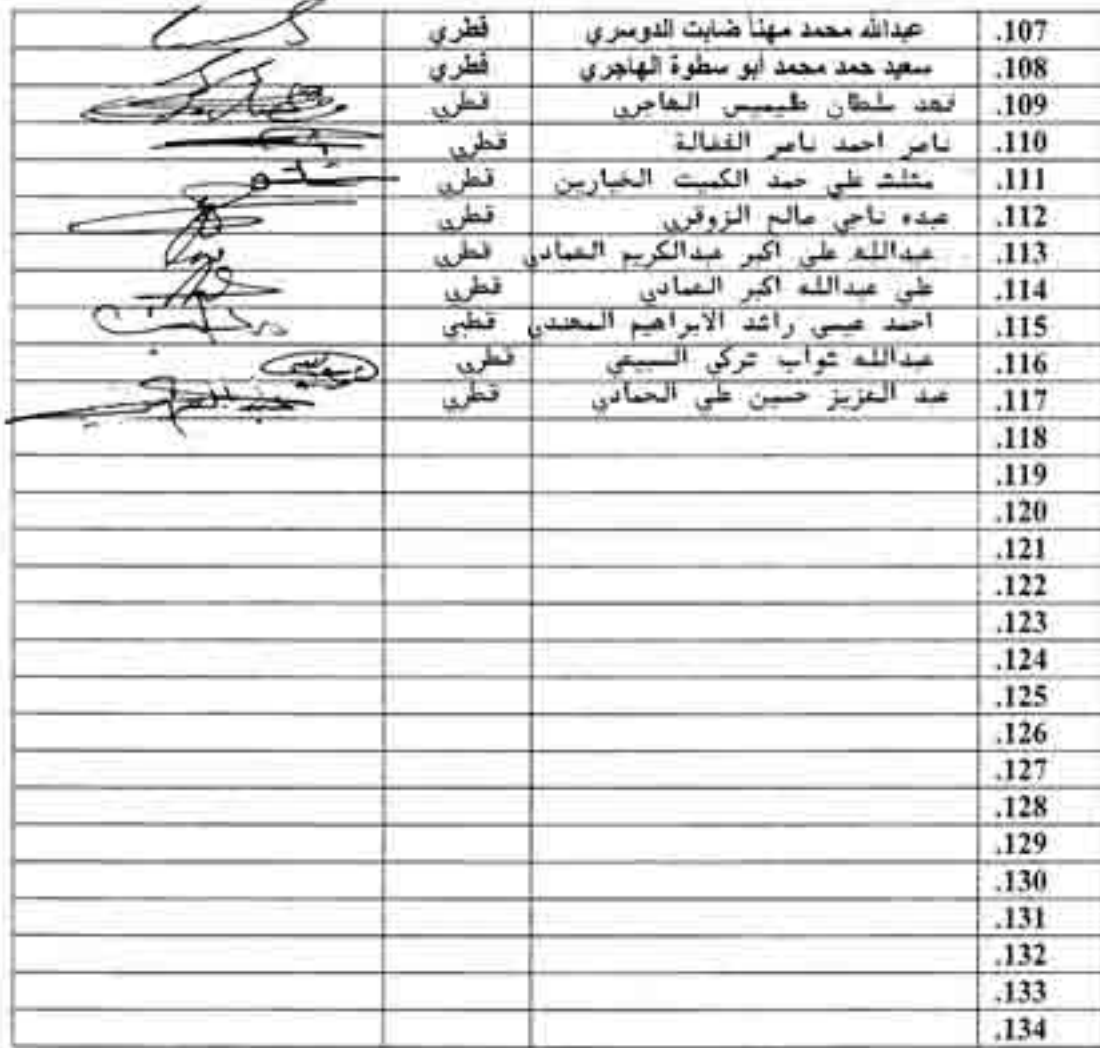 .107 عبدالله محمد مهنا ضابت الدوسري قطري
.108 سعيد حمد محمد أبو سطوة الهاجري قطري
.109 فهد سلطان طيميس الهاجري قطري
.110 ناصر احمد ناصر الفضالة قطري
.111 علي حمد الكميت الخيارين قطري
.112 عبده ناجي صالح الزوقري قطري
.113 عبدالله علي اكبر عبدالكريم العمادي قطري
.114 علي عبدالله اكبر العمادي قطري
.115 احمد عيسى راشد الابراهيم المهندي قطبي
.116 عبدالله ثواب تركي السبيعي قطري
.117 عبد العزيز حسين علي الحمادي قطري
.118
.119
.120
.121
.122
.123
.124
.125
.126
.127
.128
.129
.130
.131
.132
.133
.134